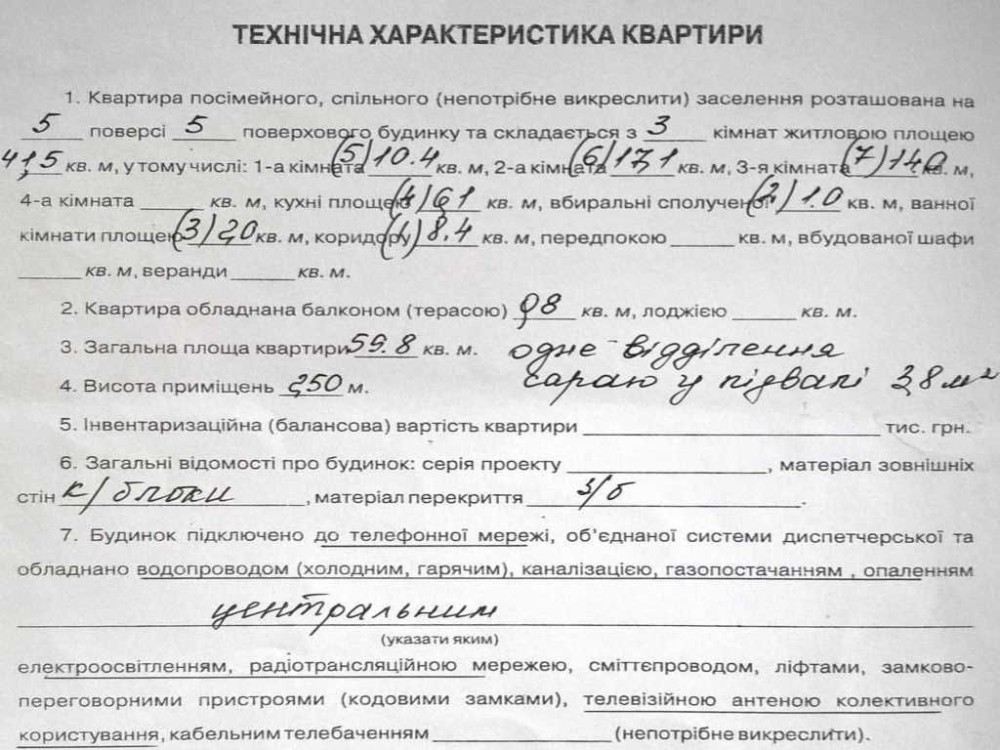 ТЕХНІЧНА ХАРАКТЕРИСТИКА КВАРТИРИ
1. Квартира посімейного, спільного (непотрібне викреслити) заселення розташована на
5 поверсі 5 поверхового будинку та складається з 3 кімнат житловою площею
41,5 кв. м, у тому числі: 1-а кімната (5) 10.4 кв. м, 2-а кімната (6) 17,1 кв. м, 3-я кімната (7) 14,0 кв. м,
4-а кімната ______ кв. м, кухні площею (4) 6,1 кв. м, вбиральні сполученої (2) 1.0 кв. м, ванної
кімнати площею (3) 2,0 кв. м, коридору (1) 8.4 кв. м, передпокою ______ кв. м, вбудованої шафи
______ кв. м, веранди ______ кв. м.
2. Квартира обладнана балконом (терасою) 0,8 кв. м, лоджією ______ кв. м.
3. Загальна площа квартири 59.8 кв. м. одне відділення
4. Висота приміщень 2,50 м. сараю у підвалі 3,8 м²
5. Інвентаризаційна (балансова) вартість квартири ______ тис. грн.
6. Загальні відомості про будинок: серія проекту ______, матеріал зовнішніх
стін к/блоки, матеріал перекриття з/б.
7. Будинок підключено до телефонної мережі, об'єднаної системи диспетчерської та
обладнано водопроводом (холодним, гарячим), каналізацією, газопостачанням , опаленням
центральним
(указати яким)
електроосвітленням, радіотрансляційною мережею, сміттєпроводом, ліфтами, замково-
переговорними пристроями (кодовими замками), телевізійною антеною колективного
користування, кабельним телебаченням ______ (непотрібне викреслити).